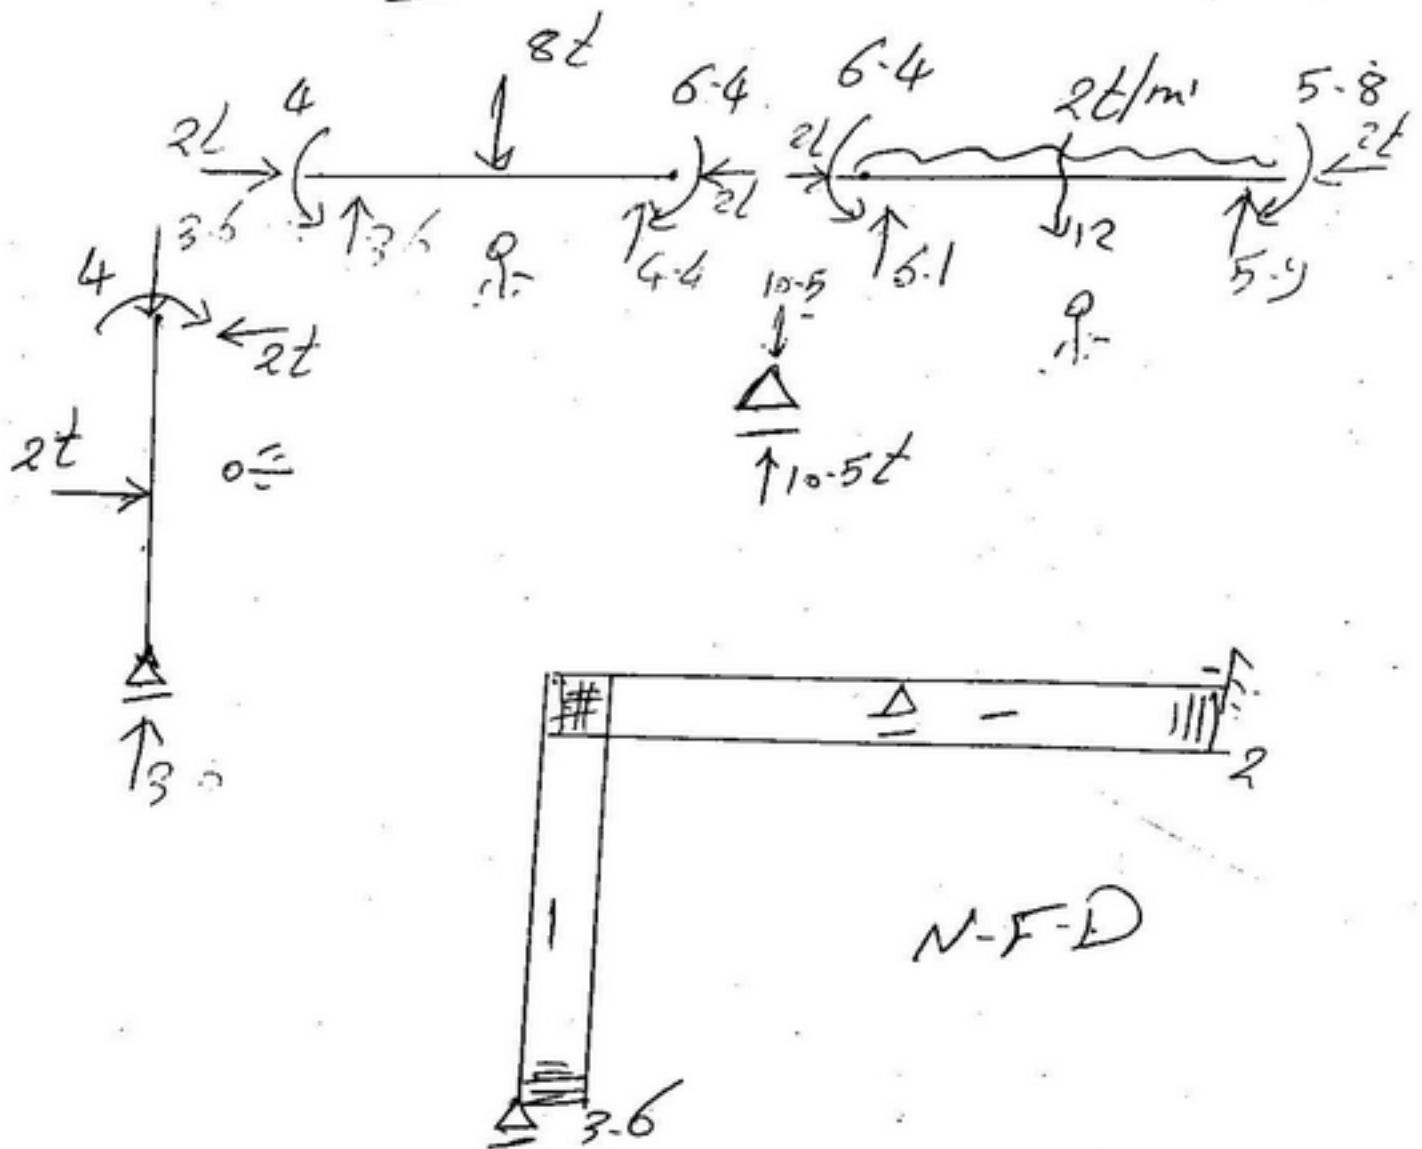 8t
4
6.4
6.4
2t/m'
5.8
2t
2t
2t
2t
3.6
3.6
4.4
6.1
12
5.9
4
2t
10.5
2t
10.5t
3
2
N-F-D
3.6